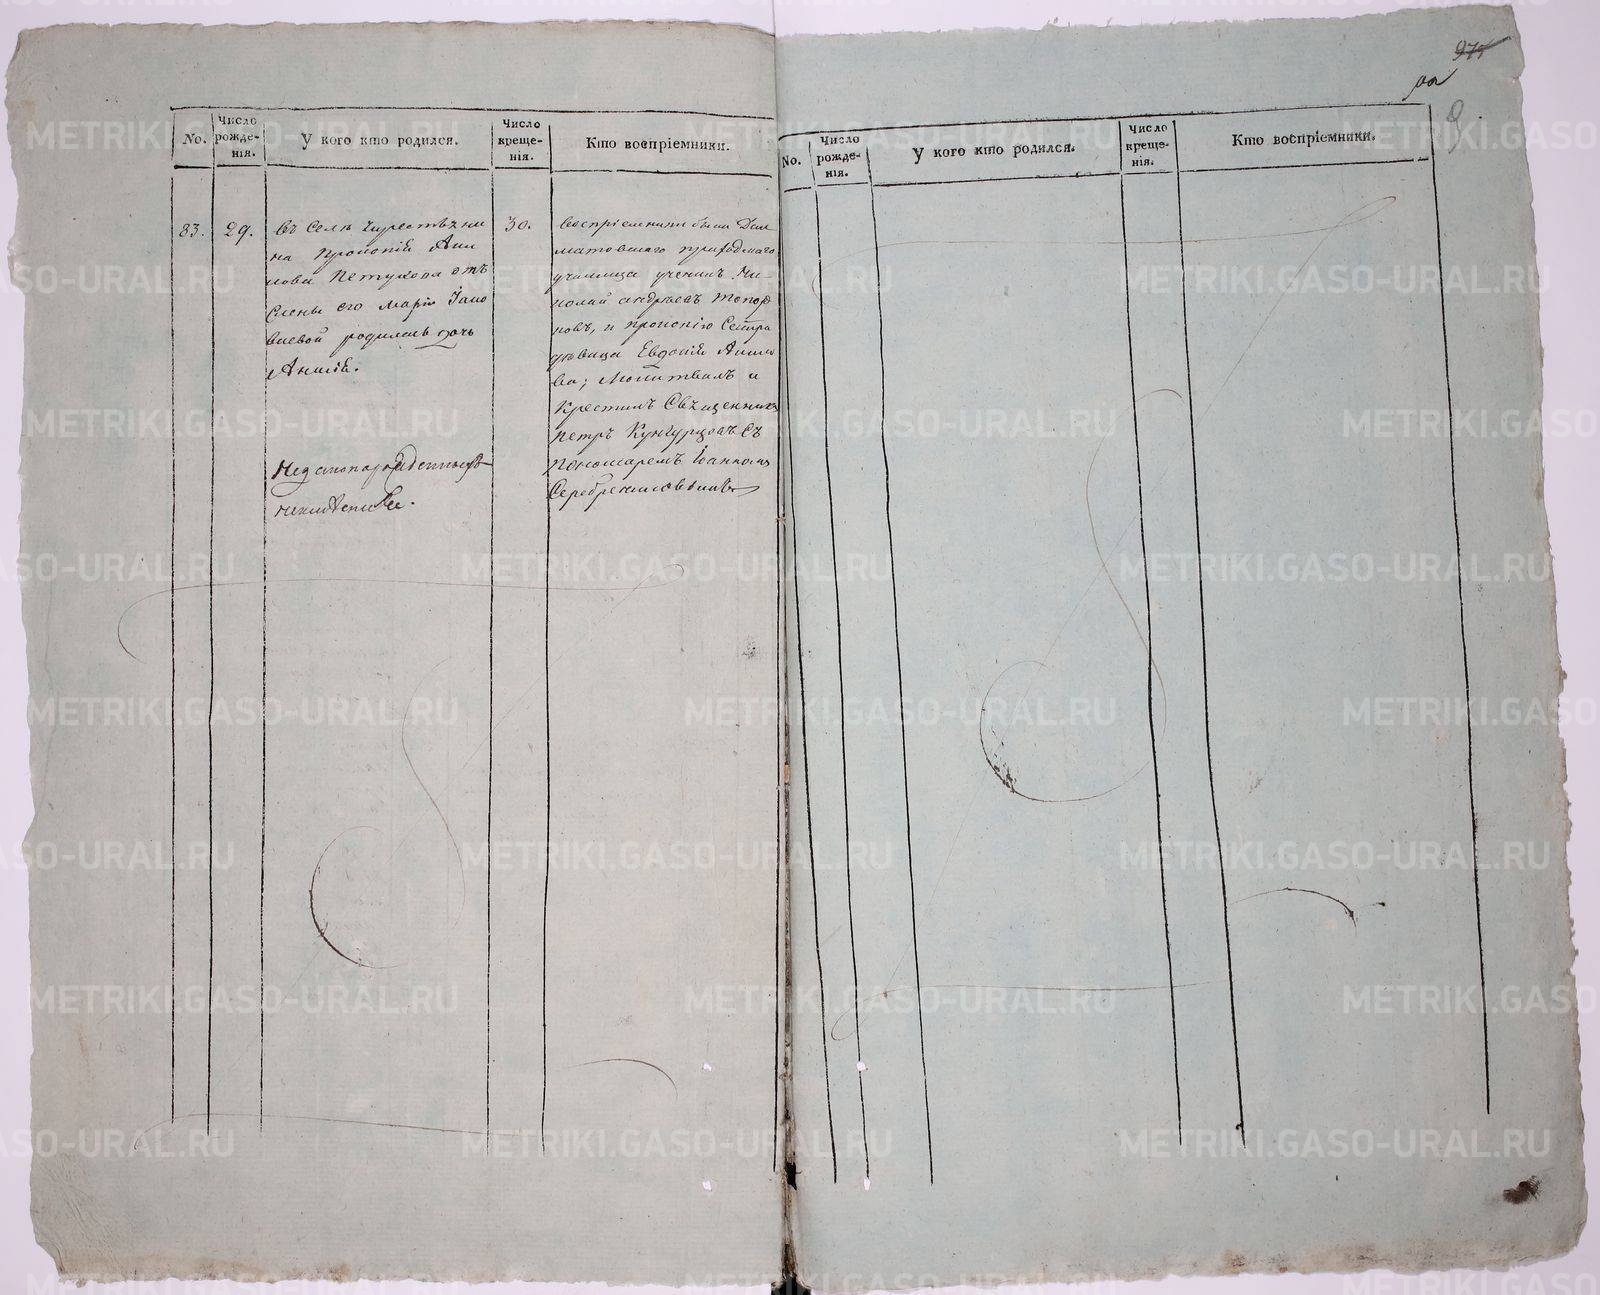 975
No.
Число рожде-нія.
У кого кто родился.
Число креще-нія.
Кто воспріемники.
83.
29.
въ Селѣ
на Прокопій Аки
нова Петухова отъ
жены его Маріи Іако
влевой родилась дочь
Анисія.
30.
Воспріемники были Дал
матовскаго приходскаго
училища ученикъ Ни
колай Андреевъ Топор
ковъ, и Прокопію Сестра
дѣвица Евдокія Акино
ва; Молитвилъ и
Крестилъ Священникъ
Петръ Кунгурцовъ съ
пономаремъ Іоанномъ
Серебренниковымъ
No.
Число рожде-нія.
У кого кто родился.
Число креще-нія.
Кто воспріемники.
METRIKI.GASO-URAL.RU